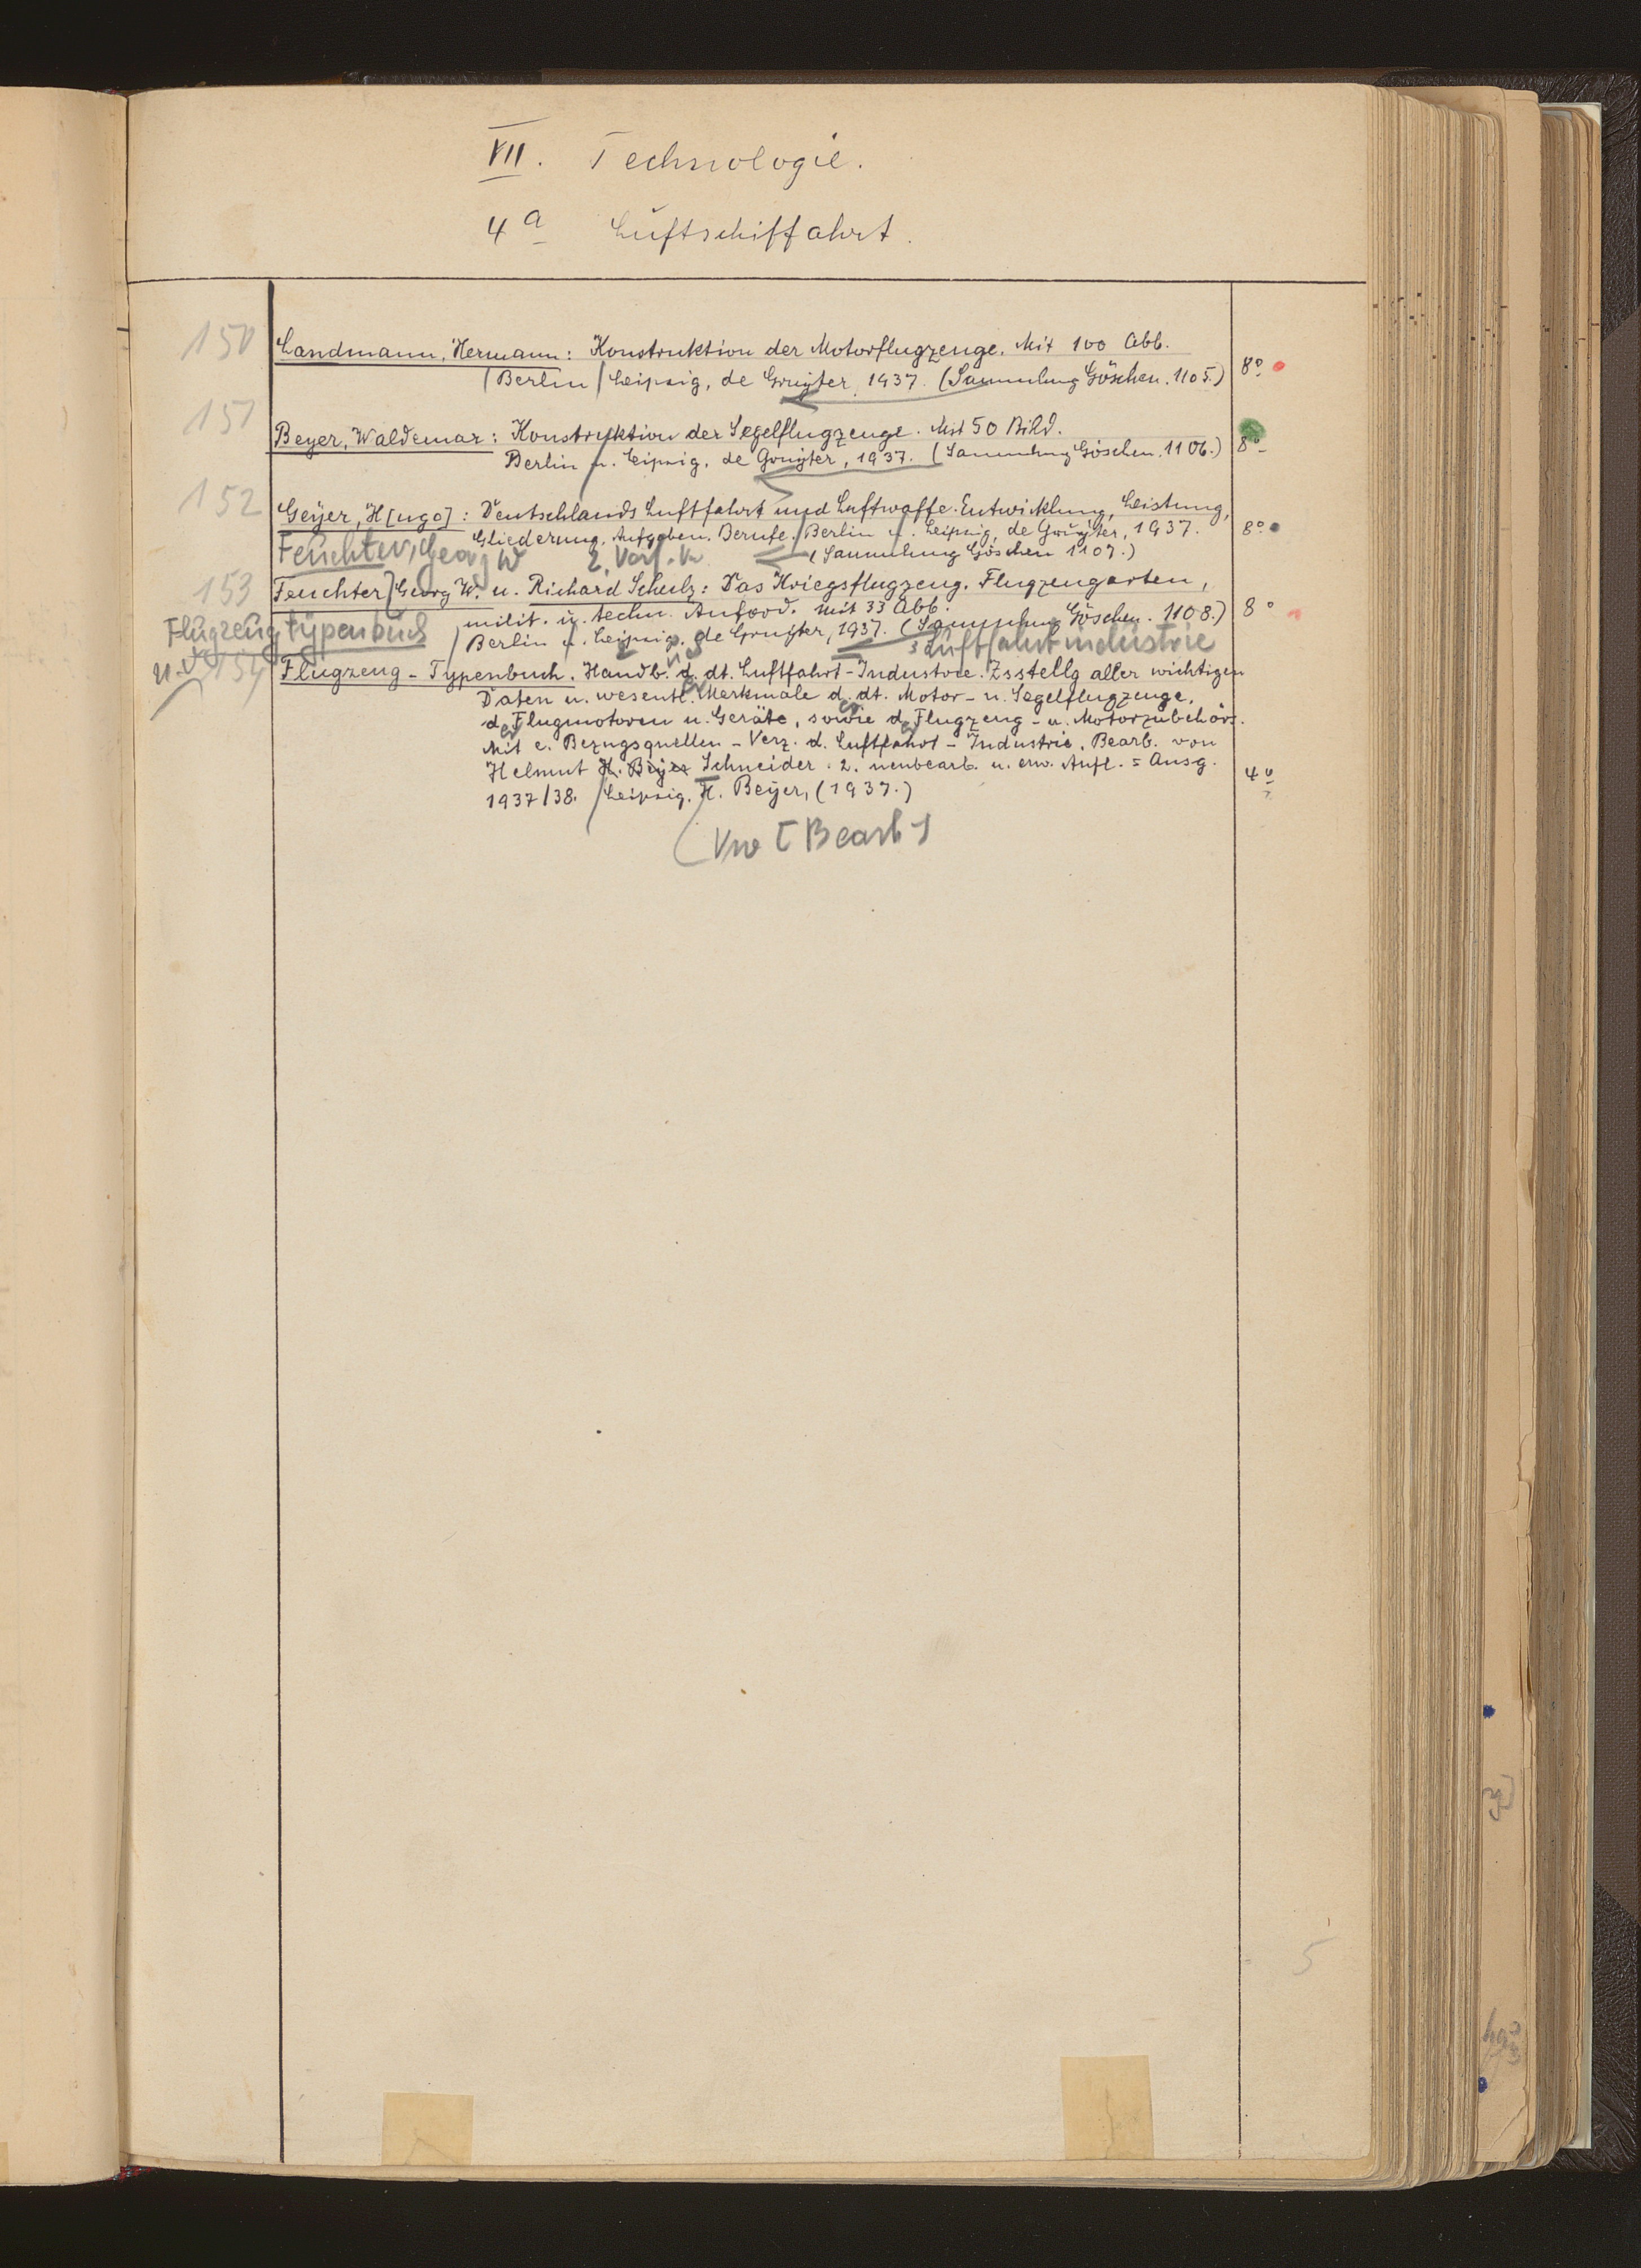 VII. Technologie.
4a Luftschiffahrt.
150
Landmann, Hermann: Konstruktion der Motorflugzeuge. Mit 100 Abb.
Berlin / Leipzig, de Gruyter, 1937. (Sammlung Göschen. 1105.) 8°
151
Beyer, Waldemar: Konstruktion der Segelflugzeuge. Mit 50 Bild.
Berlin u. Leipzig, de Gruyter, 1937. (Sammlung Göschen. 1106.) 8°
152
Geyer, H[ugo]: Deutschlands Luftfahrt und Luftwaffe. Entwicklung, Leistung,
Gliederung, Aufgaben. Berufe. Berlin u. Leipzig, de Gruyter, 1937. 8°
(Sammlung Göschen 1107.)
Feuchter, Georg W 2. Verf. Vw
153
Feuchter, Georg W. u. Richard Schulz: Das Kriegsflugzeug. Flugzeugarten,
milit. u. techn. Anford. Mit 33 Abb.
Berlin u. Leipzig, de Gruyter, 1937. (Sammlung Göschen. 1108.) 8°
Flugzeug Typenbuch
Luftfahrtindustrie
154
Flugzeug-Typenbuch. Handb. d. dt. Luftfahrt-Industrie. Zsstellg aller wichtigen
Daten u. wesentl. Merkmale d. dt. Motor- u. Segelflugzeuge,
d. Flugmotoren u. Geräte, sowie d. Flugzeug- u. Motorzubehörs.
Mit e. Bezugsquellen-Verz. d. Luftfahrt-Industrie. Bearb. von
Helmut H. Beyer Schneider. 2. neubearb. u. erw. Aufl. = Ausg.
1937/38. Leipzig, H. Beyer, (1937.) 4°
Vw [Bearb]
5